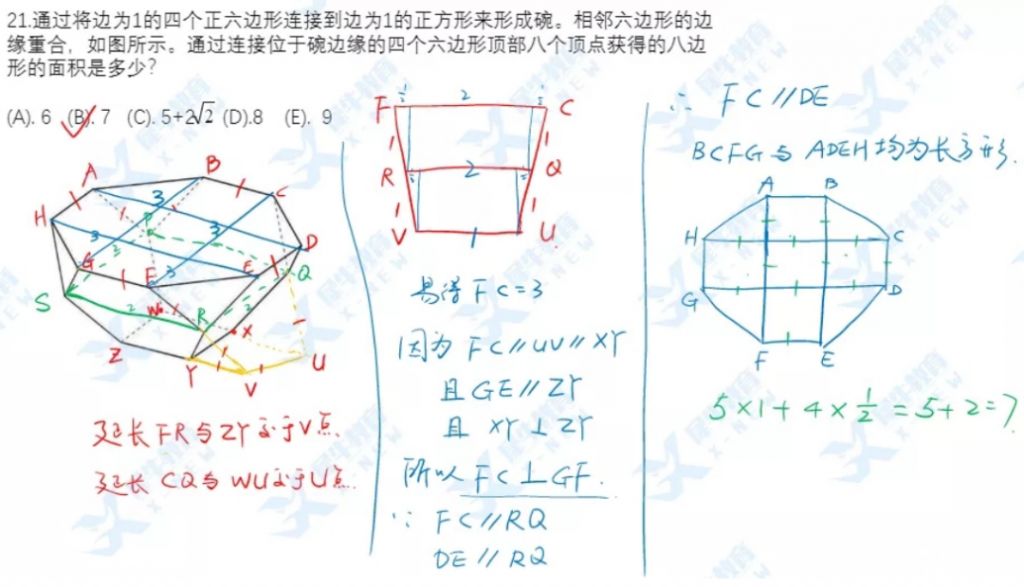 21.通过将边为1的四个正六边形连接到边为1的正方形来形成碗。相邻六边形的边
缘重合，如图所示。通过连接位于碗边缘的四个六边形顶部八个顶点获得的八边
形的面积是多少？
(A). 6 (B). 7 (C). 5+2√2 (D).8 (E). 9
A
B
C
H
3
3
D
3
3
G
F
E
Q
S
2
2
2
R
W
X
Z
Y
V
U
延长 FR 与 ZY 交于 V 点.
延长 CQ 与 WU 交于 U 点.
F
½
2
½
C
1
1
R
2
Q
1
1
V
1
U
易得 FC=3
因为 FC//UV//XY
且 GE//ZY
且 XY⊥ZY
所以 FC⊥GF.
∵ FC//RQ
DE//RQ
∴ FC//DE
BCFG 与 ADEH 均为长方形.
A
B
H
C
G
D
F
E
5×1+4×½=5+2=7.
犀牛教育
X-NEW